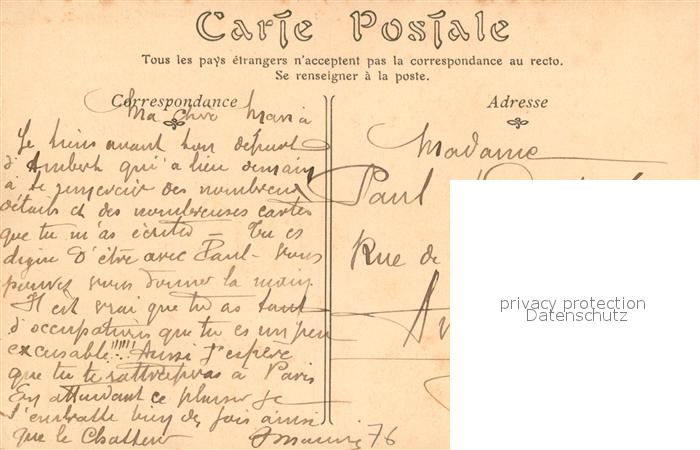 Carte Postale
Tous les pays étrangers n'acceptent pas la correspondance au recto.
Se renseigner à la poste.
Correspondance
Adresse
Ma chère Maria
Je tiens avant ton départ
d'Ambert qui a lieu demain
à te remercier des nombreux
détails et des nombreuses cartes
que tu m'as écrites - Tu es
digne d'être avec Paul - Vous
pouvez vous donner la main
Il est vrai que tu as tant
d'occupations que tu es un peu
excusable!!!!! Aussi j'espère
que tu te rattraperas à Paris
En attendant ce plaisir je
t'embrasse bien des fois ainsi
que le
76
Madame
Paul
Rue de
privacy protection
Datenschutz